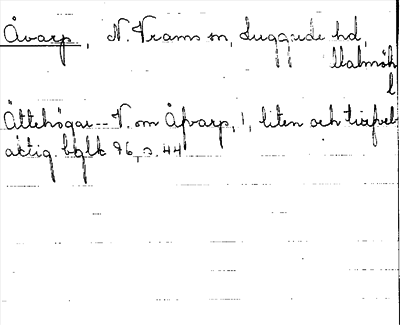 Åvarp, N. Vrams sn, Luggude hd,
Malmöh
l
Ättehögar -- V. om Åfvarp, 1, liten och tvifvel-
aktig. bglk 96, s. 44